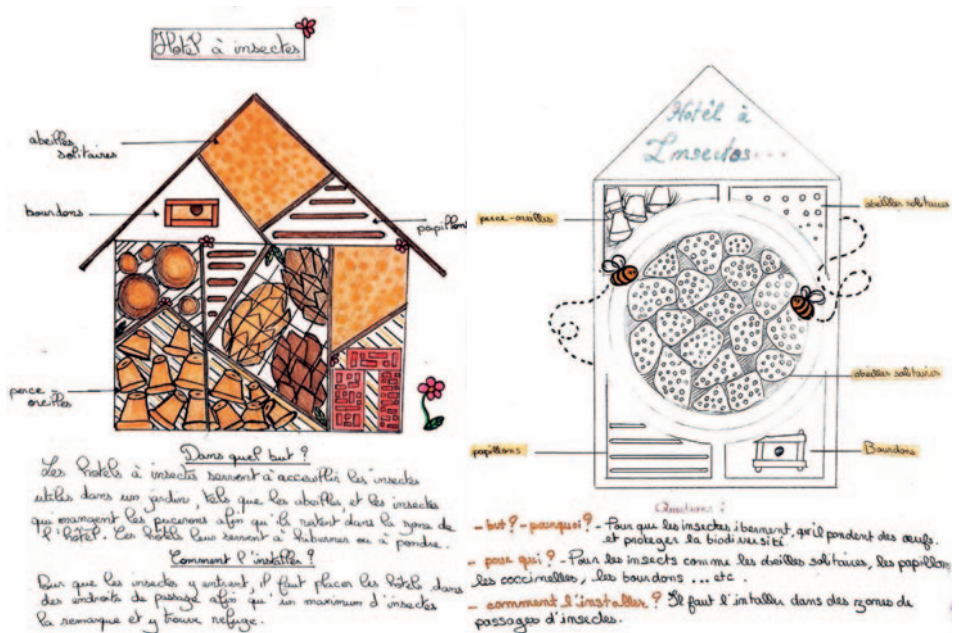 Hotel à insectes
abeilles
solitaires
bourdons
papillons
perce
oreilles
Dans quel but ?
Les hotels à insectes servent à accueillir les insectes
utiles dans un jardin, tels que les abeilles, et les insectes
qui mangent les pucerons afin qu'ils restent dans la zone de
l'hôtel. Les hôtels leur servent à hiberner ou à pondre.
Comment l'installer ?
Pour que les insectes y entrent, il faut placer les hôtels dans
des endroits de passage afin qu'un maximum d'insectes
la remarque et y trouve refuge.
Hotêl à
Insectes...
perce-oreilles
abeilles solitaires
abeilles solitaires
papillons
Bourdons
Questions :
- but ? - pourquoi ? - Pour que les insectes ibernent, qu'il pondent des œufs,
et proteger la biodiversité
- pour qui ? - Pour les insects comme les abeilles solitaires, les papillons
les coccinelles, les bourdons ... etc.
- comment l'installer ? Il faut l'intaller dans des zones de
passages d'insectes.